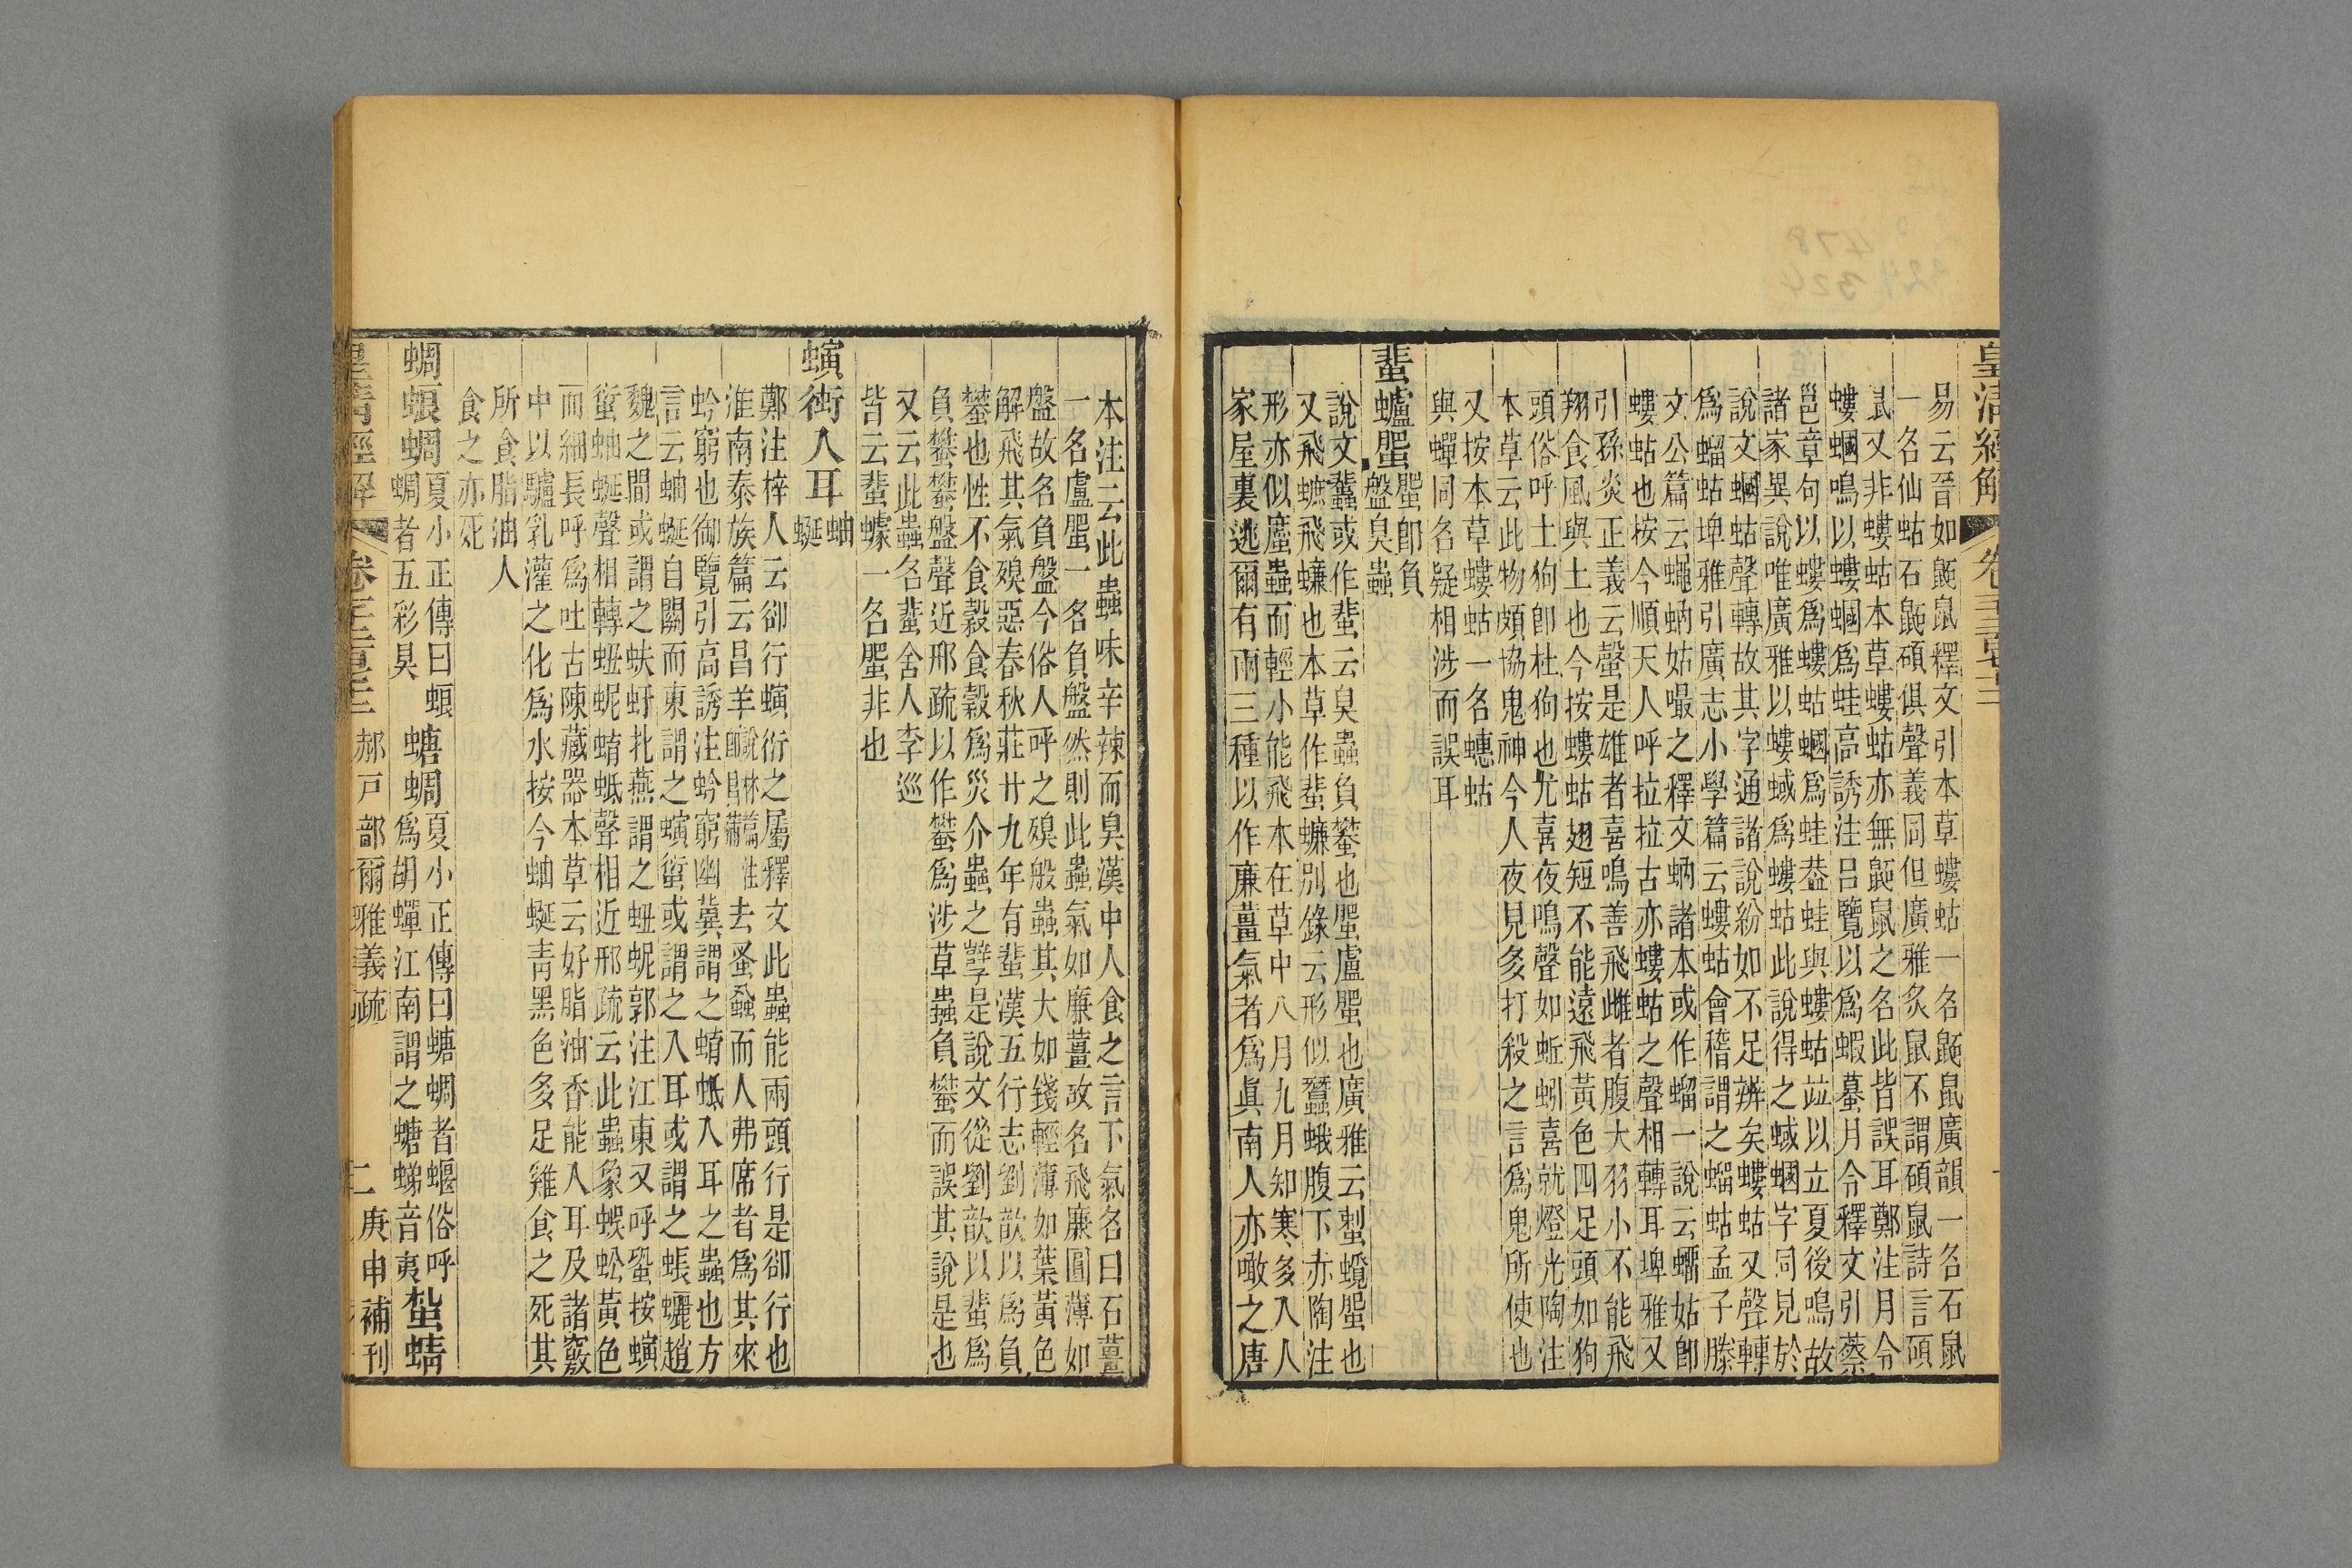 皇清經解
卷千二百七十三
易云晉如鼫鼠釋文引本草螻蛄一名鼫鼠廣韻一名石鼠
一名仙蛄石鼫碩俱聲義同但廣雅炙鼠不謂碩鼠詩言碩
鼠又非螻蛄本草螻蛄亦無鼫鼠之名此皆誤耳鄭注月令
螻蟈鳴以螻蟈爲蛙高誘注呂覽以爲蝦蟇月令釋文引蔡
邕章句以螻爲螻蛄蟈爲蛙葢蛙與螻蛄竝以立夏後鳴故
諸家異說唯廣雅以螻蜮爲螻蛄此說得之蜮蟈字同見於
說文蟈蛄聲轉故其字通諸說紛如不足辨矣螻蛄又聲轉
爲蝼蛄埤雅引廣志小學篇云螻蛄會稽謂之䗃蛄孟子滕
文公篇云蠅蚋姑嘬之釋文蚋諸本或作䗃一說云蠕姑卽
螻蛄也按今順天人呼拉拉古亦螻蛄之聲相轉耳埤雅又
引孫炎正義云䗥是雄者喜鳴善飛雌者腹大羽小不能飛
翔食風與土也今按螻蛄翅短不能遠飛黃色四足頭如狗
頭俗呼土狗卽杜狗也尤喜夜鳴聲如蚯蚓喜就燈光陶注
本草云此物頗協鬼神今人夜見多打殺之言爲鬼所使也
又按本草螻蛄一名蟪蛄
與蟬同名疑相涉而誤耳
蜚蠦蜰 蜰卽負
盤臭蟲
說文蠹或作蜚云臭蟲負蠜也蜰盧蜰也廣雅云蟿蟯蜰也
又飛蟅飛蠊也本草作蜚蠊別錄云形似蠶蛾腹下赤陶注
形亦似䗪蟲而輕小能飛本在草中八月九月知寒多入人
家屋裏逃爾有兩三種以作廉薑氣者爲眞南人亦噉之唐
本注云此蟲味辛辣而臭漢中人食之言下氣名曰石薑
一名盧蜰一名負盤然則此蟲氣如廉薑故名飛廉圓薄如
盤故名負盤今俗人呼之殠般蟲其大如錢輕薄如葉黃色
解飛其氣殠惡春秋莊廿九年有蜚漢五行志劉歆以爲負
蠜也性不食穀食穀爲災介蟲之孽是說文從劉歆以蜚爲
負蠜蠜盤聲近邢疏以作蠜爲涉草蟲負蠜而誤其說是也
又云此蟲名蜚舍人李巡
皆云蜚蠦一名蜰非也
螾衝入耳 蚰
蜒
鄭注梓人云卻行螾衍之屬釋文此蟲能兩頭行是卻行也
淮南泰族篇云昌羊 說林篇注
卽昌蒲 去蚤蝨而人弗席者爲其來
蛉窮也御覽引高誘注蛉窮幽冀謂之蜻蚳入耳之蟲也方
言云蚰蜒自關而東謂之螾䘆或謂之入耳或謂之蜄䗍趙
魏之間或謂之蚨虶北燕謂之蚭蚭郭注江東又呼蛩按螾
䘆蚰蜒聲相轉蚭蚭蜻蚳聲相近邢疏云此蟲象蜈蚣黃色
而細長呼爲吐古陳藏器本草云好脂油香能入耳及諸竅
中以驢乳灌之化爲水按今蚰蜒靑黑色多足雞食之死其
所食脂油人
食之亦死
蜩蜋蜩 夏小正傳曰蜋
蜩者五彩具 螗蜩 夏小正傳曰螗蜩者蝘俗呼
爲胡蟬江南謂之螗蛦音夷 蚻蜻
皇清經解 卷千二百七十三 郝戶部爾雅義疏 二 庚申補刊